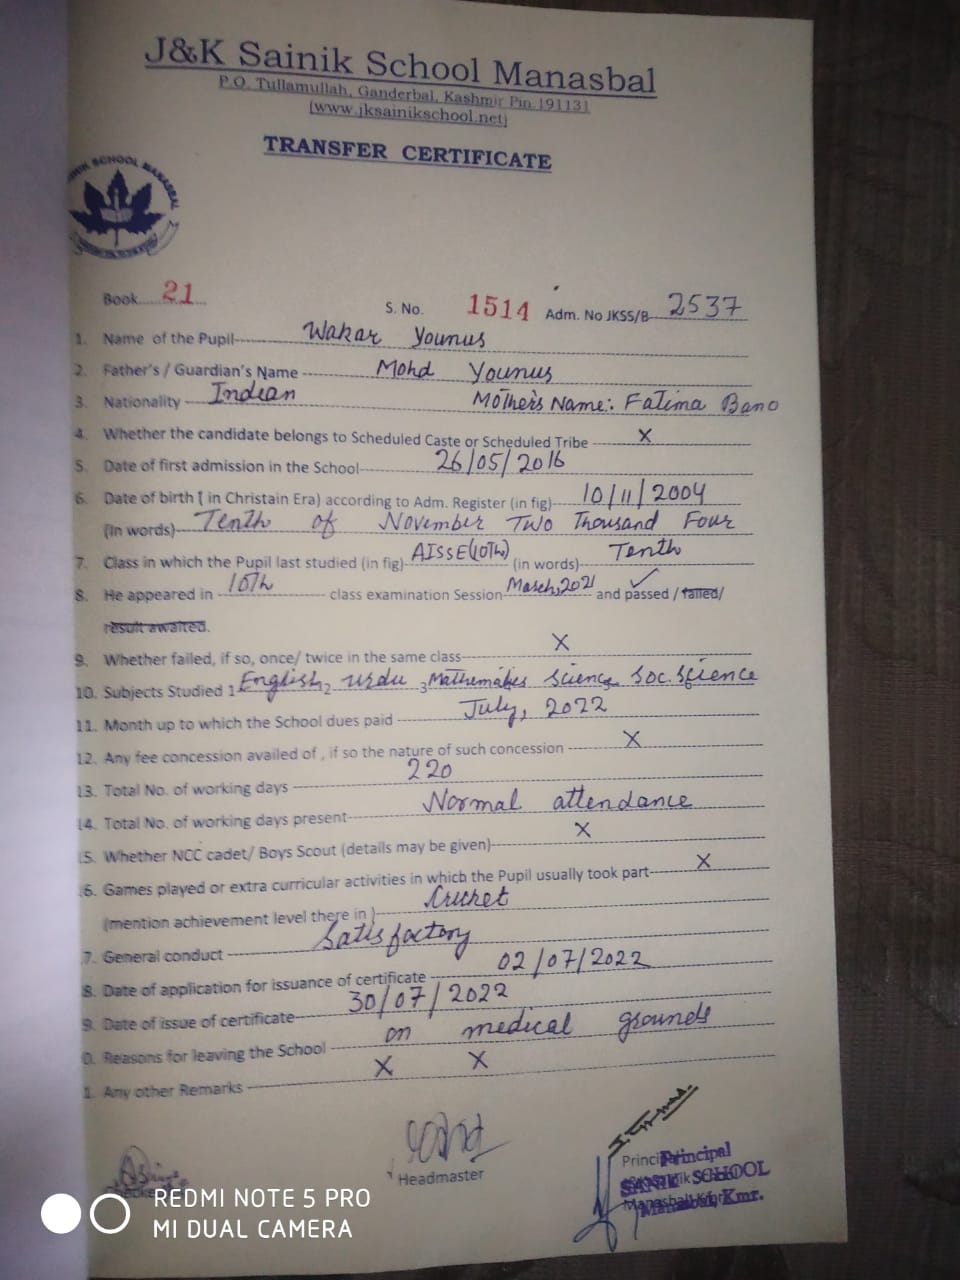 J&K Sainik School Manasbal
P.O. Tullamullah, Ganderbal, Kashmir Pin.191131
(www.jksainikschool.net)
TRANSFER CERTIFICATE
SCHOOL MANASBAL
Book 21 S. No. 1514 Adm. No JKSS/B 2537
1. Name of the Pupil Wakar Younus
2. Father's / Guardian's Name Mohd Younus
3. Nationality Indian Mother's Name: Fatima Bano
4. Whether the candidate belongs to Scheduled Caste or Scheduled Tribe X
5. Date of first admission in the School 26/05/2016
6. Date of birth ( in Christain Era) according to Adm. Register (in fig) 10/11/2004
(In words) Tenth of November Two Thousand Four
7. Class in which the Pupil last studied (in fig) AISSE(10Th) (in words) Tenth
8. He appeared in 10Th class examination Session March,2021 and passed / failed/
result awaited.
9. Whether failed, if so, once/ twice in the same class X
10. Subjects Studied 1 English 2 Urdu 3 Mathematics Science Soc. Science
11. Month up to which the School dues paid July, 2022
12. Any fee concession availed of , if so the nature of such concession X
13. Total No. of working days 220
14. Total No. of working days present Normal attendance
5. Whether NCC cadet/ Boys Scout (details may be given) X
6. Games played or extra curricular activities in which the Pupil usually took part X
(mention achievement level there in ) Cricket
7. General conduct Satisfactory
8. Date of application for issuance of certificate 02/07/2022
9. Date of issue of certificate 30/07/2022
0. Reasons for leaving the School on medical grounds
1. Any other Remarks X X
Headmaster
Principal
SANIK SCHOOL
Manasbal, Kmr.
REDMI NOTE 5 PRO
MI DUAL CAMERA